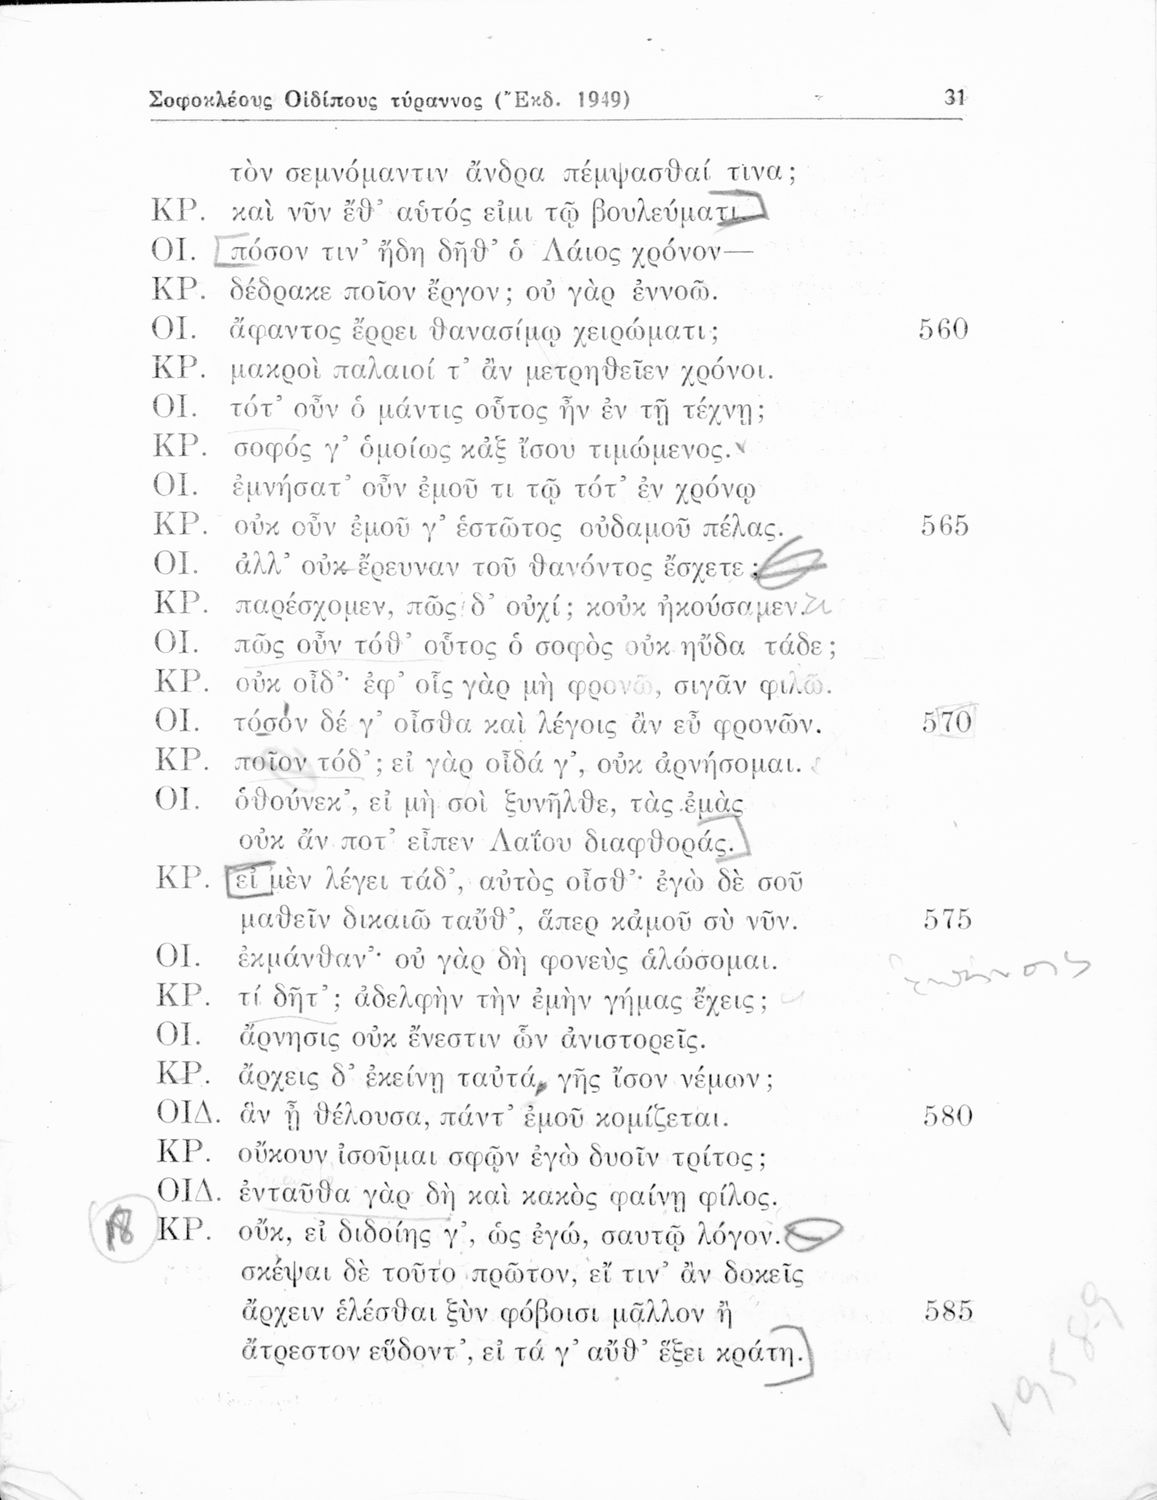 Σοφοκλέους Οἰδίπους τύραννος (Ἔκδ. 1949) 31
τὸν σεμνόμαντιν ἄνδρα πέμψασθαί τινα;
ΚΡ. καὶ νῦν ἔθ' αὑτός εἰμι τῷ βουλεύματι.
ΟΙ. πόσον τιν' ἤδη δῆθ' ὁ Λάιος χρόνον—
ΚΡ. δέδρακε ποῖον ἔργον; οὐ γὰρ ἐννοῶ.
ΟΙ. ἄφαντος ἔρρει θανασίμῳ χειρώματι; 560
ΚΡ. μακροὶ παλαιοί τ' ἂν μετρηθεῖεν χρόνοι.
ΟΙ. τότ' οὖν ὁ μάντις οὗτος ἦν ἐν τῇ τέχνῃ;
ΚΡ. σοφός γ' ὁμοίως κἀξ ἴσου τιμώμενος.
ΟΙ. ἐμνήσατ' οὖν ἐμοῦ τι τῷ τότ' ἐν χρόνῳ
ΚΡ. οὐκ οὖν ἐμοῦ γ' ἑστῶτος οὐδαμοῦ πέλας. 565
ΟΙ. ἀλλ' οὐκ ἔρευναν τοῦ θανόντος ἔσχετε;
ΚΡ. παρέσχομεν, πῶς δ' οὐχί; κοὐκ ἠκούσαμεν.
ΟΙ. πῶς οὖν τόθ' οὗτος ὁ σοφὸς οὐκ ηὔδα τάδε;
ΚΡ. οὐκ οἶδ'· ἐφ' οἷς γὰρ μὴ φρονῶ, σιγᾶν φιλῶ.
ΟΙ. τόσον δέ γ' οἶσθα καὶ λέγοις ἂν εὖ φρονῶν. 570
ΚΡ. ποῖον τόδ'; εἰ γὰρ οἶδά γ', οὐκ ἀρνήσομαι.
ΟΙ. ὁθούνεκ', εἰ μὴ σοὶ ξυνῆλθε, τὰς ἐμὰς
οὐκ ἄν ποτ' εἶπεν Λαΐου διαφθοράς.
ΚΡ. εἰ μὲν λέγει τάδ', αὐτὸς οἶσθ'· ἐγὼ δὲ σοῦ
μαθεῖν δικαιῶ ταὔθ', ἅπερ κἀμοῦ σὺ νῦν. 575
ΟΙ. ἐκμάνθαν'· οὐ γὰρ δὴ φονεὺς ἁλώσομαι.
ΚΡ. τί δῆτ'; ἀδελφὴν τὴν ἐμὴν γήμας ἔχεις;
ΟΙ. ἄρνησις οὐκ ἔνεστιν ὧν ἀνιστορεῖς.
ΚΡ. ἄρχεις δ' ἐκείνῃ ταὐτά, γῆς ἴσον νέμων;
ΟΙΔ. ἃν ᾖ θέλουσα, πάντ' ἐμοῦ κομίζεται. 580
ΚΡ. οὔκουν ἰσοῦμαι σφῷν ἐγὼ δυοῖν τρίτος;
ΟΙΔ. ἐνταῦθα γὰρ δὴ καὶ κακὸς φαίνῃ φίλος.
18 ΚΡ. οὔκ, εἰ διδοίης γ', ὡς ἐγώ, σαυτῷ λόγον.
σκέψαι δὲ τοῦτο πρῶτον, εἴ τιν' ἂν δοκεῖς
ἄρχειν ἑλέσθαι ξὺν φόβοισι μᾶλλον ἢ 585
ἄτρεστον εὕδοντ', εἰ τά γ' αὔθ' ἕξει κράτη.
19589